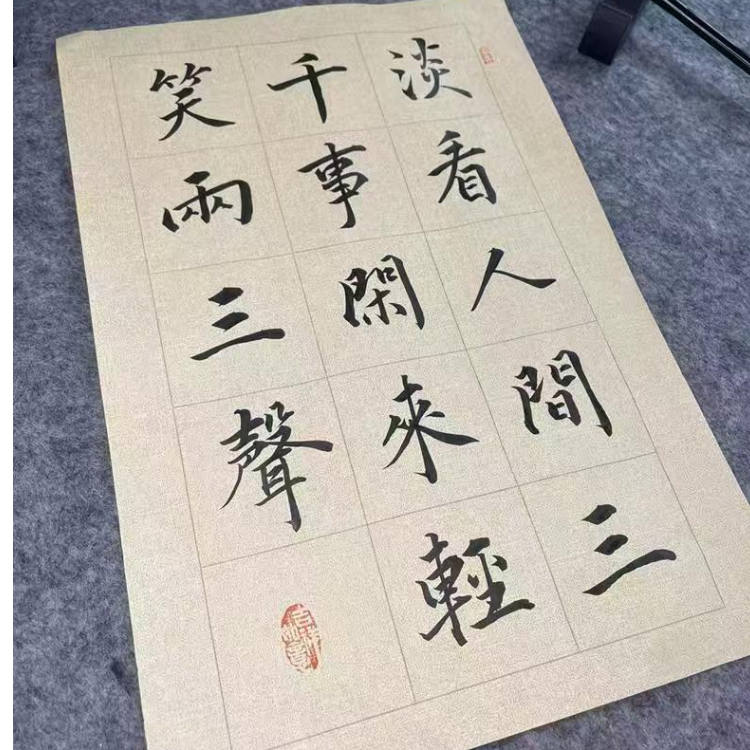 淡看人間三
千事閑来輕
笑兩三聲